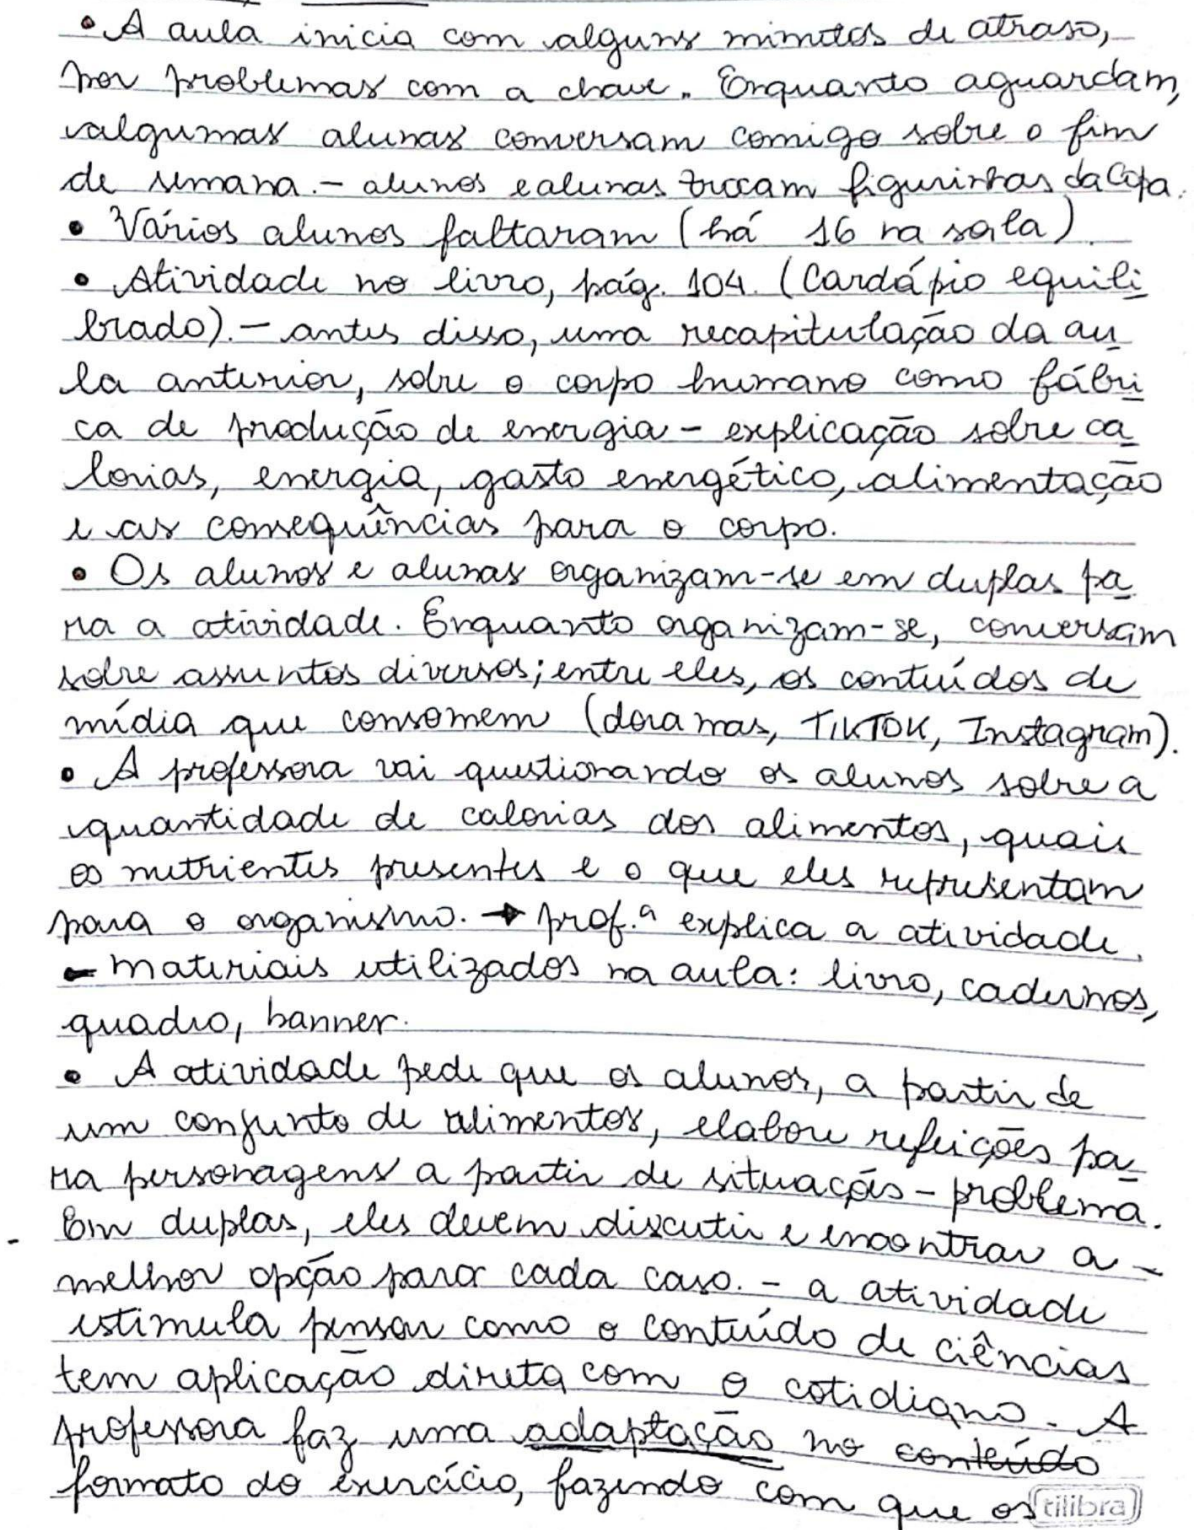 • A aula inicia com alguns minutos de atraso,
por problemas com a chave. Enquanto aguardam,
algumas alunas conversam comigo sobre o fim
de semana. - alunos e alunas trocam figurinhas da Copa.
• Vários alunos faltaram (há 16 na sala)
• Atividade no livro, pág. 104. (Cardápio equili
brado). - antes disso, uma recapitulação da au
la anterior, sobre o corpo humano como fábri
ca de produção de energia - explicação sobre ca
lorias, energia, gasto energético, alimentação
e as consequências para o corpo.
• Os alunos e alunas organizam-se em duplas pa
ra a atividade. Enquanto organizam-se, conversam
sobre assuntos diversos; entre eles, os conteúdos de
mídia que consomem (doramas, TIKTOK, Instagram).
• A professora vai questionando os alunos sobre a
quantidade de calorias dos alimentos, quais
os nutrientes presentes e o que eles representam
para o organismo. → prof.ª explica a atividade.
- materiais utilizados na aula: livro, cadernos,
quadro, banner.
• A atividade pede que os alunos, a partir de
um conjunto de alimentos, elabore refeições pa
ra personagens a partir de situações-problema.
Em duplas, eles devem discutir e encontrar a
melhor opção para cada caso. - a atividade
estimula pensar como o conteúdo de ciências
tem aplicação direta com o cotidiano. A
professora faz uma adaptação no conteúdo
formato do exercício, fazendo com que os
tilibra